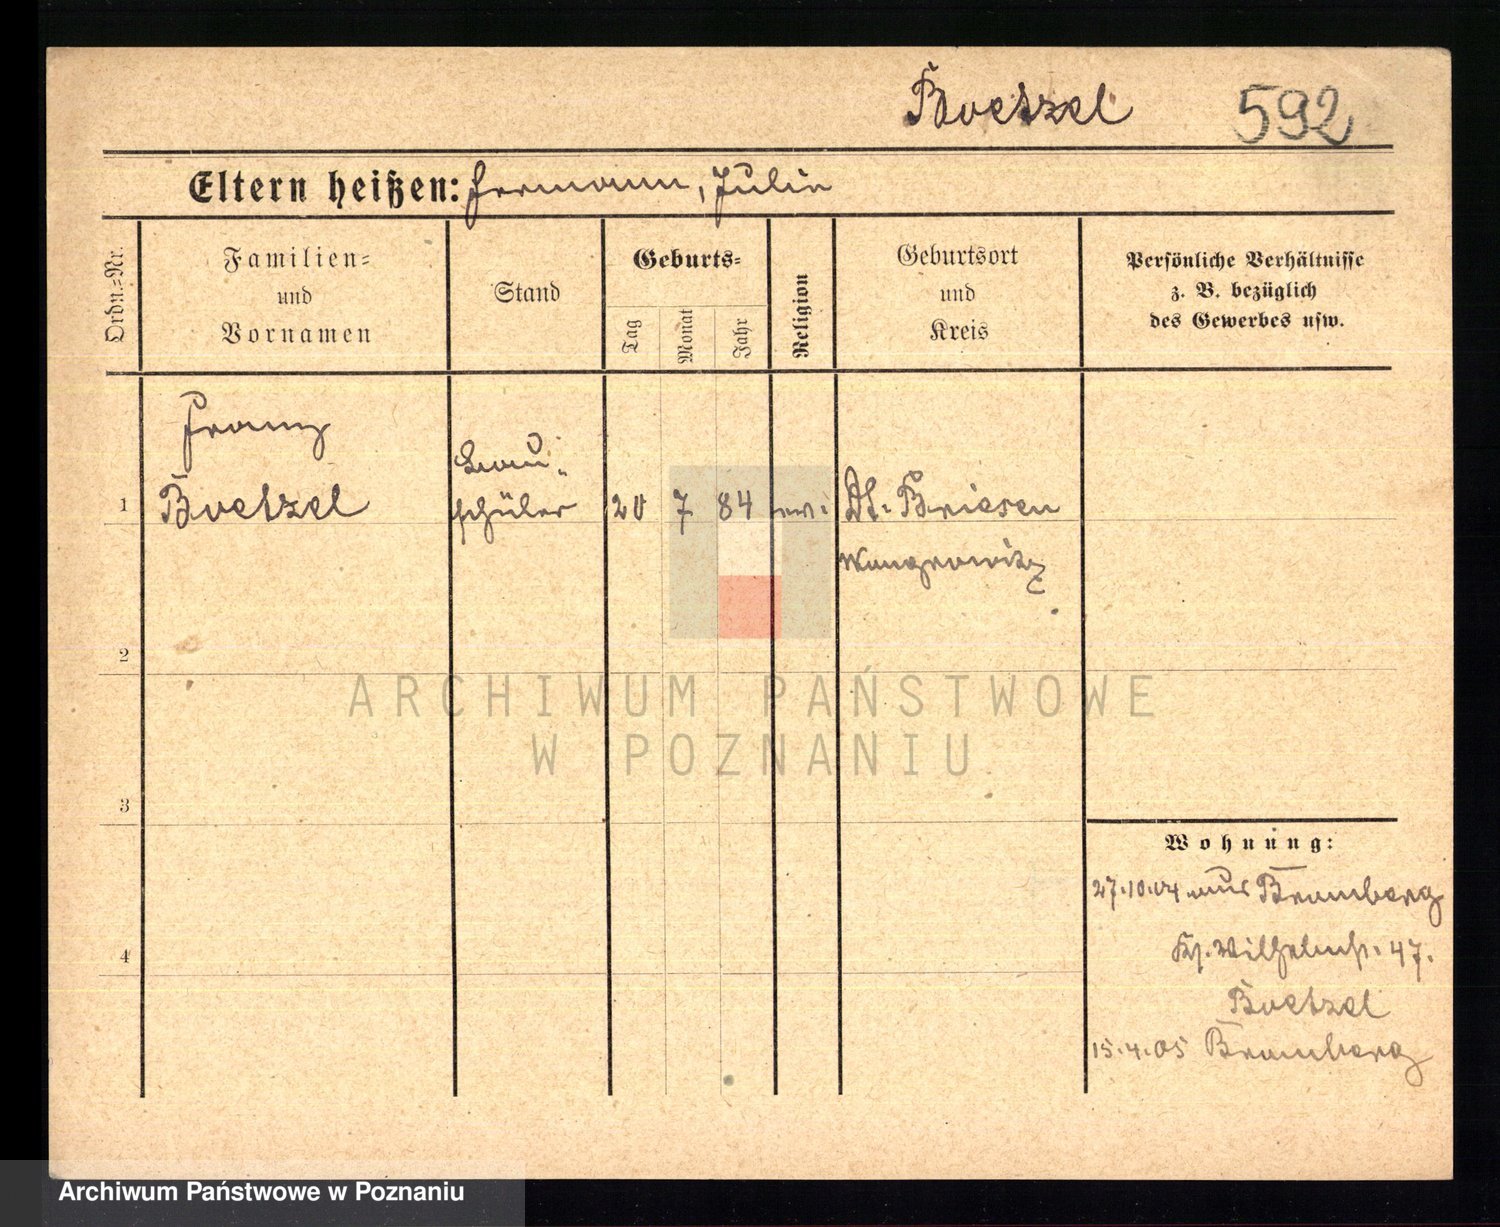 Boetzel 592
Eltern heißen: Hermann, Julie
Ordn.=Nr.
Familien=
und
Vornamen
Stand
Geburts=
Tag
Monat
Jahr
Religion
Geburtsort
und
Kreis
Persönliche Verhältnisse
z. B. bezüglich
des Gewerbes usw.
Franz
Bau-
1 Boetzel schüler 20 7 84 ev. Dt. Briesen
Wongrowitz
2
ARCHIWUM PAŃSTWOWE
W POZNANIU
3
Wohnung:
27.10.04 aus Bromberg
4
Kp. Wilhelmst. 47.
Boetzel
15.4.05 Bromberg
Archiwum Państwowe w Poznaniu